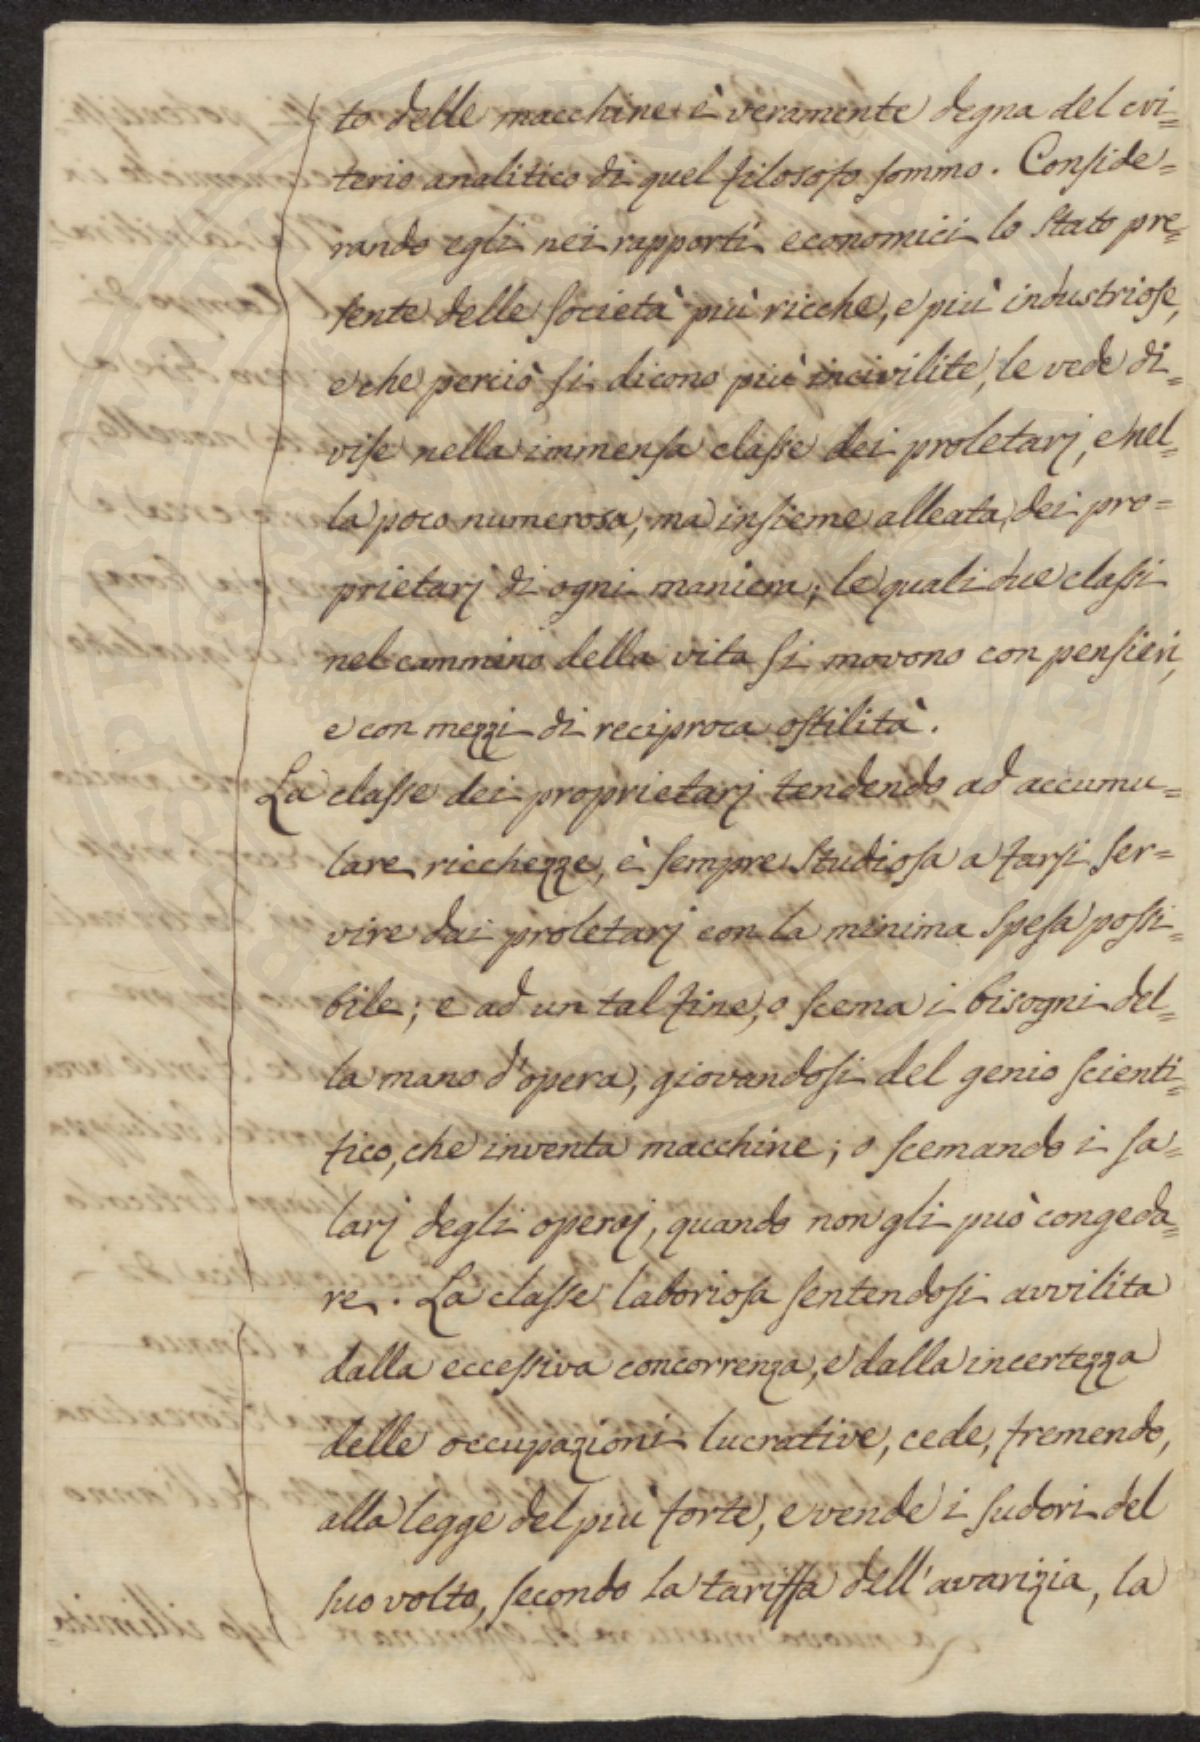 to delle macchine è veramente degna del cri=
terio analitico di quel filosofo sommo. Conside=
rando egli nei rapporti economici lo stato pre=
sente delle società più ricche, e più industriose,
e che perciò si dicono più incivilite, le vede di=
vise nella immensa classe dei proletarj, e nel=
la poco numerosa, ma insieme alleata, dei pro=
prietarj di ogni maniera; le quali due classi
nel cammino della vita si movono con pensieri,
e con mezzi di reciproca ostilità.
La classe dei proprietarj tendendo ad accumu=
lare ricchezze, è sempre studiosa a farsi ser=
vire dai proletarj con la minima spesa possi=
bile; e ad un tal fine, o scema i bisogni del=
la mano d'opera, giovandosi del genio scienti=
fico, che inventa macchine; o scemando i sa=
larj degli operaj, quando non gli può congeda=
re. La classe laboriosa sentendosi avvilita
dalla eccessiva concorrenza, e dalla incertezza
delle occupazioni lucrative, cede, fremendo,
alla legge del più forte, e vende i sudori del
suo volto, secondo la tariffa dell'avarizia, la